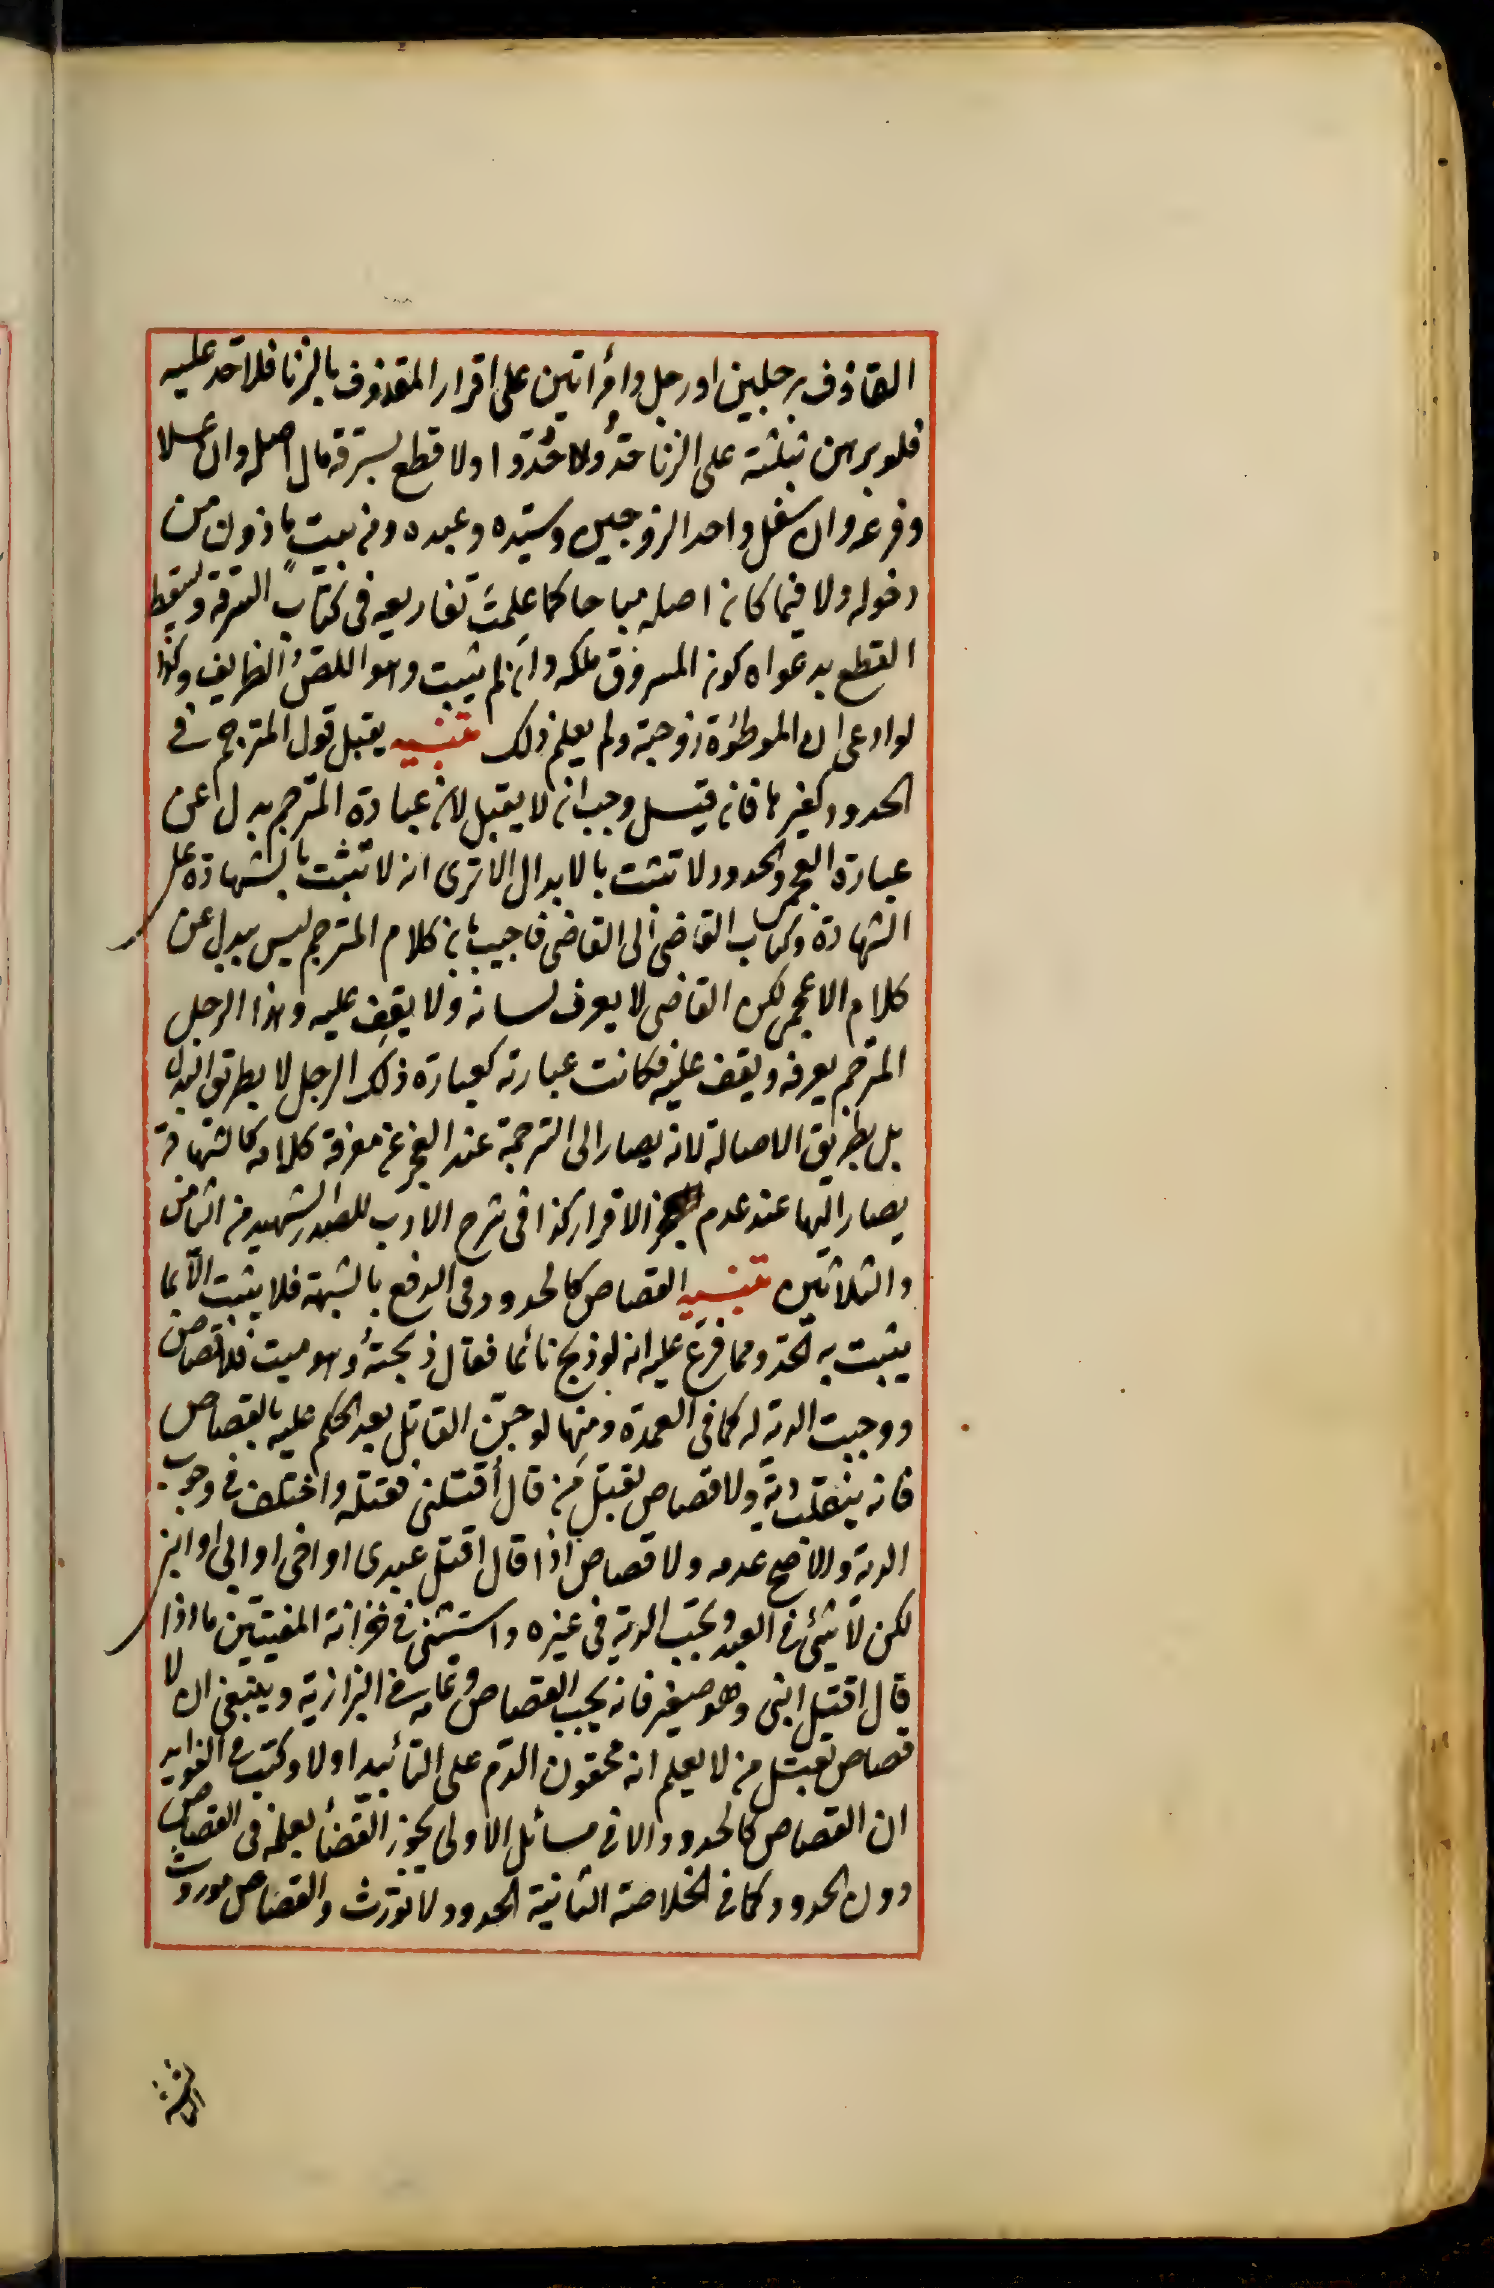 القاذف برجلين او رجل وامرأتين على اقرار المقذوف بالزنا فلا حد عليه
فلو برهن بثلثة على الزنا حدّ وحُدّوا ولا قطع بسرقة مال اصله وان علا
وفرعه وان سفل واحد الزوجين وسيّده وعبده ومن بيت ماذون من
دخوله ولا فيما كان اصله مباحا كما علمت تفاريعه فى كتاب السرقة ويسقط
القطع بدعواه كون المسروق ملكه وان لم يثبت وهو اللصّ الظريف وكذا
لو ادعى ان الموطؤة زوجته ولم يعلم ذلك تنبيه يقبل قول المترجم فى
الحدود كغيرها فان قيل وجب ان لا يقبل لان عبارة المترجم بدل عن
عبارة العجمى والحدود لا تثبت بالابدال الا ترى انه لا تثبت بالشهادة على
الشهادة وكتاب القاضى الى القاضى فاجيب بان كلام المترجم ليس ببدل عن
كلام الاعجمى لكن القاضى لا يعرف لسانه ولا يقف عليه وهذا الرجل
المترجم يعرفه ويقف عليه فكانت عبارته كعبارة ذلك الرجل لا بطريق البدل
بل بطريق الاصالة لانه يصار الى الترجمة عند العجز عن معرفة كلامه كالشهادة
يصار اليها عند عدم الاقرار كذا فى شرح الادب للصدر الشهيد من الثامن
والثلاثين تنبيه القصاص كالحدود فى الدفع بالشبهة فلا يثبت الّا بما
يثبت به الحدّ ومما فرع عليه انه لو ذبح نائما فقال ذبحتهُ وهو ميت فلا قصاص
ووجبت الدية له كما فى العمدة ومنها لو جنّ القاتل بعد الحكم عليه بالقصاص
فانه ينقلب دية ولا قصاص بقتل من قال اقتلنى فقتله واختلف فى وجوب
الدية والاصح عدمه ولا قصاص اذا قال اقتل عبدى او اخى او ابى او ابنى
لكن لا شئ فى العبد وتجب الدية فى غيره واستثنى فى خزانة المفتيين ما اذا
قال اقتل ابنى وهو صغير فانه يجب القصاص وتمامه فى البزازية وينبغى ان لا
قصاص بقتل من لا يعلم انه محقون الدم على التأبيد اولا وكتبت فى الفوايد
ان القصاص كالحدود الا فى مسائل الاولى يجوز القضأ بعلمه فى القصاص
دون الحدود كما فى الخلاصة الثانية الحدود لا تورث والقصاص مورث
الثالثة